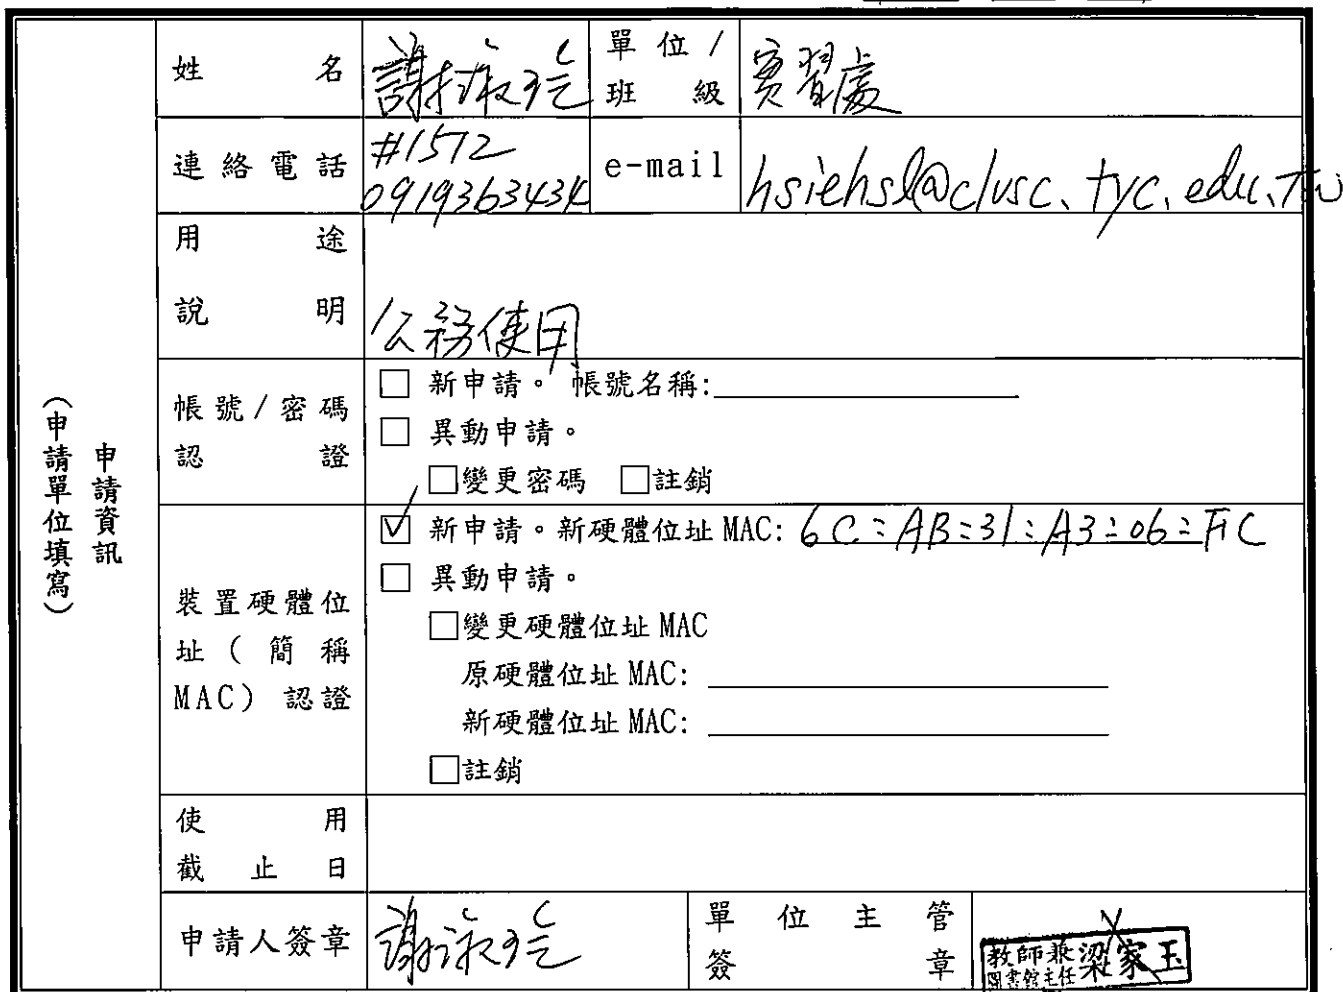 姓名 謝淑玲 單位/班級 實習處
連絡電話 #1572 0919363434 e-mail hsiehsl@clvsc.tyc.edu.tw
用途說明 公務使用
(申請單位填寫)
申請資訊
帳號/密碼認證
□ 新申請。 帳號名稱:
□ 異動申請。
□變更密碼 □註銷
裝置硬體位址(簡稱MAC)認證
☑ 新申請。新硬體位址 MAC: 6C:AB:31:A3:06:FC
□ 異動申請。
□變更硬體位址 MAC
原硬體位址 MAC:
新硬體位址 MAC:
□註銷
使用截止日
申請人簽章 謝淑玲 單位主管簽章 教師兼圖書館主任 梁家玉